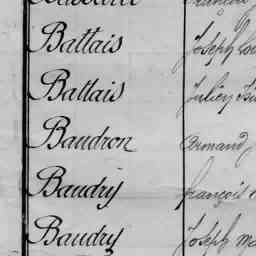 Battais Joseph
Battais Julien
Baudron Armand
Baudry françois
Baudry Joseph